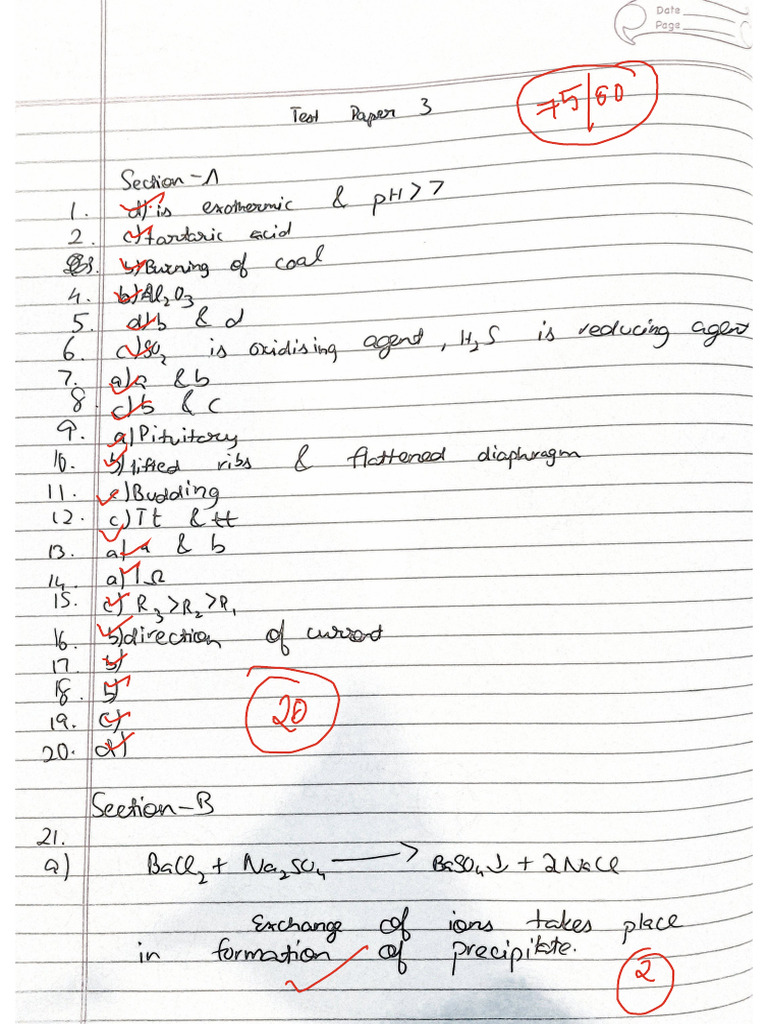 Date
Page
75/80
Test Paper 3
Section-A
1. d) is exothermic & pH>7
2. c) tartaric acid
3. b) Burning of coal
4. b) Al2O3
5. d) b & d
6. c) SO2 is oxidising agent, H2S is reducing agent
7. a) a & b
8. c) b & c
9. a) Pituitary
10. b) lifted ribs & flattened diaphragm
11. c) Budding
12. c) Tt & tt
13. a) a & b
14. a) 1Ω
15. c) R3>R2>R1
16. b) direction of current
17. b)
18. b)
19. c)
20. d)
20
Section-B
21.
a) BaCl2 + Na2SO4 → BaSO4↓ + 2NaCl
Exchange of ions takes place
in formation of precipitate.
2